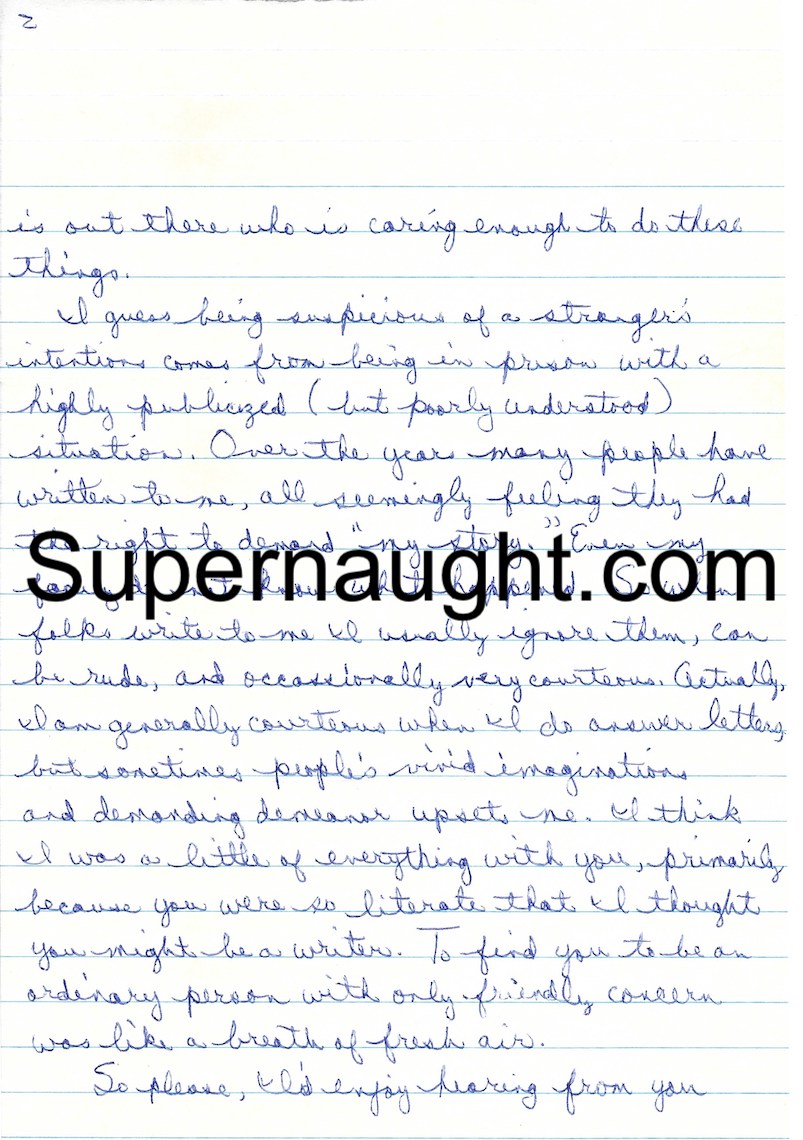 2
is out there who is caring enough to do these
things.
I guess being suspicious of a stranger's
intentions comes from being in prison with a
highly publicized (but poorly understood)
situation. Over the years many people have
written to me, all seemingly feeling they had
the right to demand "my story." Even my
Supernaught.com
family doesn't know what happened. So when
folks write to me I usually ignore them, can
be rude, and occassionally very courteous. Actually,
I am generally courteous when I do answer letters,
but sometimes people's vivid imaginations
and demanding demeanor upsets me. I think
I was a little of everything with you, primarily
because you were so literate that I thought
you might be a writer. To find you to be an
ordinary person with only friendly concern
was like a breath of fresh air.
So please, I'd enjoy hearing from you